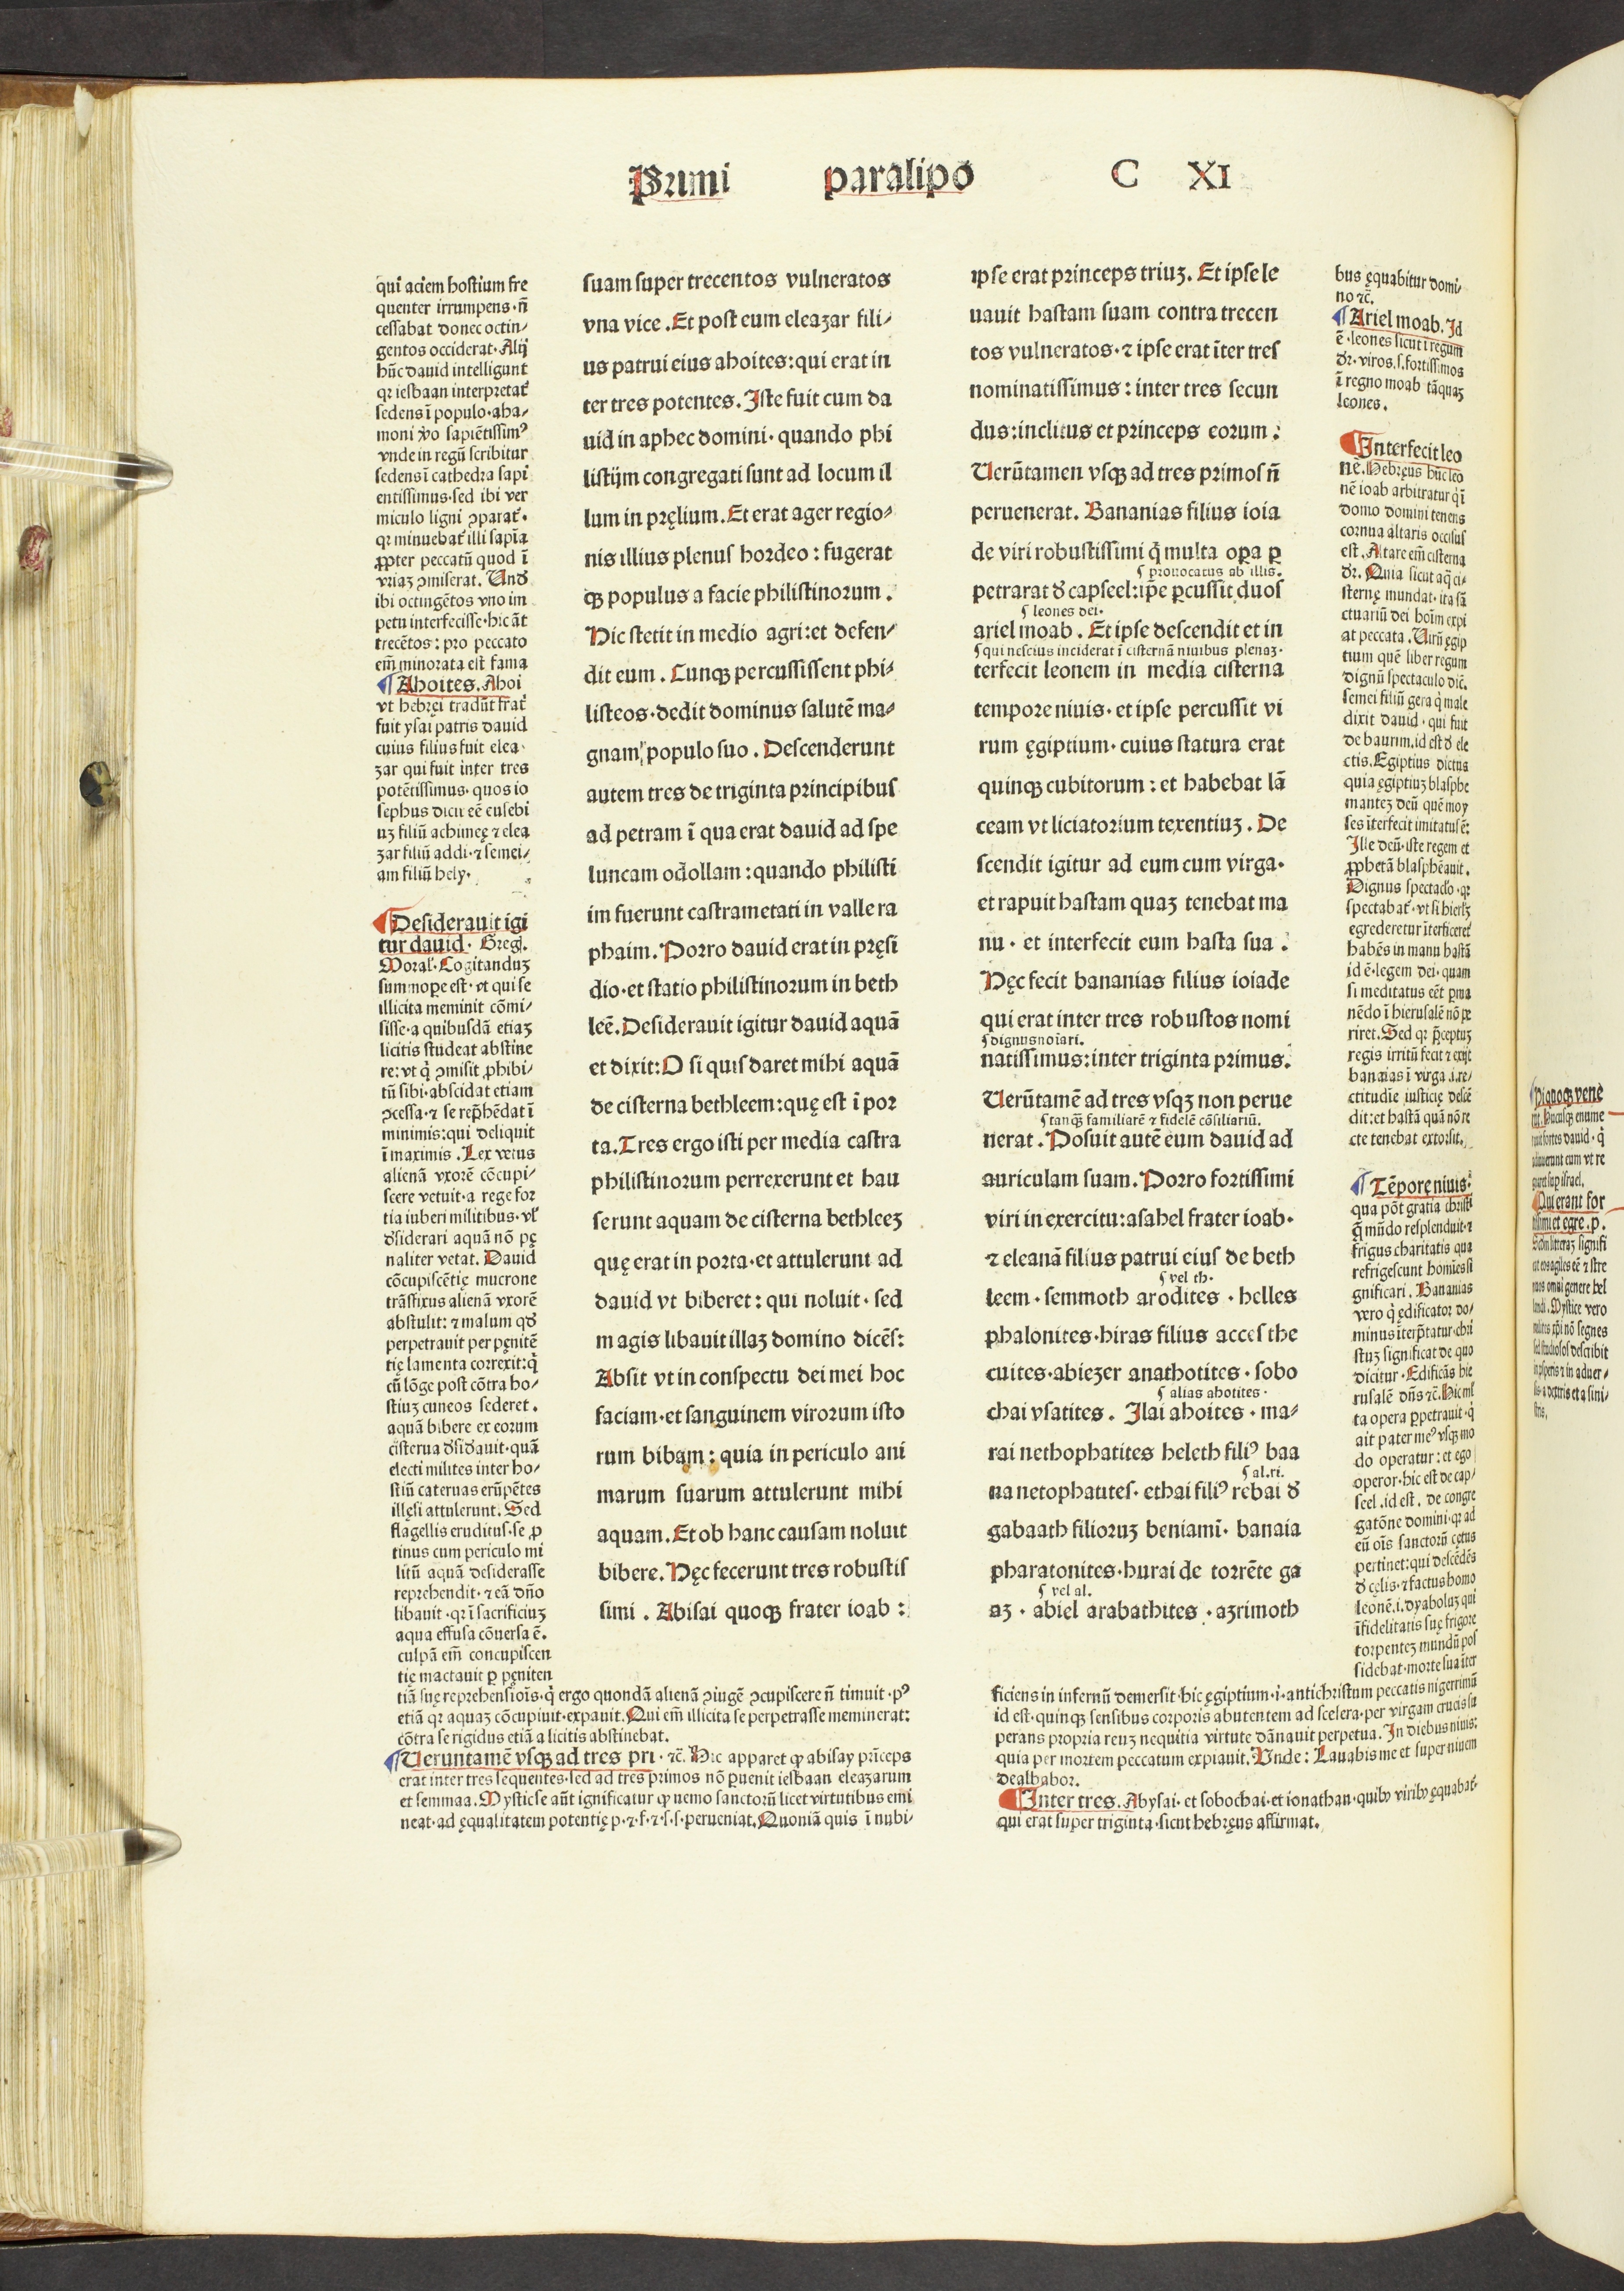 Primi paralipo C XI
qui aciem hostium fre
quenter irrumpens·n̄
cessabat donec octin⸗
gentos occiderat·Alij
hūc dauid intelligunt
qꝛ iesbaan interpretat᷑
sedens ī populo·aha⸗
moni ꝟo sapiētissimꝰ
vnde in regū scribitur
sedens ī cathedra sapi
entissimus·sed ibi ver
miculo ligni ꝯparat᷑·
qꝛ minuebat᷑ illi sapīa
ꝓpter peccatū quod ī
vriaꝫ ꝯmiserat. Vnð
ibi octingētos vno im
petu interfecisse·hic āt
trecētos: pro peccato
em̄ minorata est fama
¶ Ahoites. Ahoi
vt hebręi tradūt frat᷑
fuit ysai patris dauid
cuius filius fuit elea·
zar qui fuit inter tres
potētissimus· quos io
sephus dicit eē eusebi
uꝫ filiū achimeę ⁊ elea
zar filiū addi·⁊ semei⸗
am filiū hely·
¶ Desiderauit igi
tur dauid· Greg̃.
Moral᷑· Cogitanduꝫ
summoꝑe est· vt qui se
illicita meminit cōmi⸗
sisse·a quibusdā etiaꝫ
licitis studeat abstine
re: vt q̇ ꝯmisit ꝓhibi⸗
tū sibi·abscidat etiam
ꝯcessa·⁊ se rep̄hēdat ī
minimis:qui deliquit
ī maximis . Lex vetus
alienā vxorē cōcupi⸗
scere vetuit·a rege for
tia iuberi militibus·vl᷑
ðsiderari aquā nō pę
naliter vetat. Dauid
cōcupiscētię mucrone
trāsfixus alienā vxorē
abstulit: ⁊ malum qð
perpetrauit per pęnitē
tię lamenta correxit:q̇
cū lōge post cōtra ho⸗
stiuꝫ cuneos sederet .
aquā bibere ex eorum
cisterna ðsiðauit·quā
electi milites inter ho⸗
stiū cateruas erūpētes
illęsi attulerunt. Sed
flagellis eruditus·se ꝓ
tinus cum periculo mi
litū aquā desiderasse
reprehendit·⁊ eā dn̄o
libauit ·qꝛ ī sacrificiuꝫ
aqua effusa cōuersa ē.
culpā em̄ concupiscen
tię mactauit ꝑ pęniten
tiā suę reprehensiōis·q̇ ergo quondā alienā ꝯiugē ꝯcupiscere n̄ timuit·pꝰ
etiā qꝛ aquaꝫ cōcupiuit·expauit. Qui em̄ illicita se perpetrasse meminerat:
cōtra se rigidus etiā a licitis abstinebat.
¶ Veruntamē vsqꝫ ad tres pri·⁊c̄. Hic apparet ꝙ abisay prīceps
erat inter tres sequentes·sed ad tres primos nō ꝑuenit iesbaan eleazarum
et semmaa. Mystice aūt ignificatur ꝙ nemo sanctorū licet virtutibus emi
neat·ad ęqualitatem potentię p·⁊·f·⁊·s·s·perueniat. Quoniā quis ī nubi⸗
suam super trecentos vulneratos
vna vice . Et post eum eleazar fili⸗
us patrui eius ahoites: qui erat in
ter tres potentes. Iste fuit cum da
uid in aphec domini· quando phi
listijm congregati sunt ad locum il
lum in pręlium. Et erat ager regio⸗
nis illius plenus hordeo : fugerat
qꝫ populus a facie philistinorum .
Hic stetit in medio agri:et defen⸗
dit eum . Cunqꝫ percussissent phi⸗
listeos·dedit dominus salutē ma⸗
gnam populo suo . Descenderunt
autem tres de triginta principibus
ad petram ī qua erat dauid ad spe
luncam odollam : quando philisti
im fuerunt castrametati in valle ra
phaim. Porro dauid erat in pręsi
dio·et statio philistinorum in beth
leē. Desiderauit igitur dauid aquā
et dixit: O si quis daret mihi aquā
de cisterna bethleem: quę est ī por
ta. Tres ergo isti per media castra
philistinorum perrexerunt et hau
serunt aquam de cisterna bethleeꝫ
quę erat in porta·et attulerunt ad
dauid vt biberet: qui noluit· sed
magis libauit illaꝫ domino dicēs:
Absit vt in conspectu dei mei hoc
faciam·et sanguinem virorum isto
rum bibam: quia in periculo ani
marum suarum attulerunt mihi
aquam. Et ob hanc causam noluit
bibere. Hęc fecerunt tres robustis
simi . Abisai quoqꝫ frater ioab :
ipse erat princeps triuꝫ. Et ipse le
uauit hastam suam contra trecen
tos vulneratos·⁊ ipse erat īter tres
nominatissimus: inter tres secun
dus:inclitus et princeps eorum :
Verūtamen vsqꝫ ad tres primos n̄
peruenerat. Bananias filius ioia
de viri robustissimi q̄ multa oꝑa ꝑ
ꞩ prouocatus ab illis.
petrarat ð capseel:ip̄e ꝑcussit duos
ꞩ leones dei·
ariel moab . Et ipse descendit et in
ꞩ qui nescius inciderat ī cisternā niuibus plenaꝫ·
terfecit leonem in media cisterna
tempore niuis· et ipse percussit vi
rum ęgiptium·cuius statura erat
quinqꝫ cubitorum : et habebat lā
ceam vt liciatorium texentiuꝫ. De
scendit igitur ad eum cum virga·
et rapuit hastam quaꝫ tenebat ma
nu· et interfecit eum hasta sua :
Hęc fecit bananias filius ioiade
qui erat inter tres robustos nomi
ꞩ dignus noīari.
natissimus: inter triginta primus.
Verūtamē ad tres vsqꝫ non perue
ꞩ tanqꝫ familiarē ⁊ fidelē cōsiliariū.
nerat . Posuit autē eum dauid ad
auriculam suam. Porro fortissimi
viri in exercitu:asahel frater ioab·
⁊ eleanā filius patrui eius de beth
ꞩ vel th·
leem· semmoth arodites· helles
phalonites·hiras filius acces the
cuites·abiezer anathotites· sobo
ꞩ alias ahotites·
chai vsatites . Ilai ahoites· ma⸗
rai nethophatites heleth filiꝰ baa
ꞩ al.ri.
na netophatites· ethai filiꝰ rebai ð
gabaath filioruꝫ beniamī· banaia
pharatonites·hurai de torrēte ga
ꞩ vel al.
aꝫ · abiel arabathites · azrimoth
bus ęquabitur domi⸗
no ⁊c̄.
¶ Ariel moab. Id
ē·leones sicut ī regum
ðr·viros.s.fortissimos
ī regno moab tāquaꝫ
leones.
¶ Interfecit leo
nē. Hebręus hūc leo
nē ioab arbitratur q̇ ī
domo domini tenens
cornua altaris occisus
est . Altare em̄ cisterna
ðr. Quia sicut aq̄ ci⸗
sternę mundat·ita sā
ctuariū dei hoīm expi
at peccata . Virū ęgip
tium quē liber regum
dignū spectaculo dic̄.
semei filiū gera q̇ male
dixit dauid· qui fuit
de baurim.id est ð ele
ctis. Egiptius dictus
quia ęgiptiuꝫ blasphe
manteꝫ deū quē moy
ses īterfecit imitatus ē:
Ille deū·iste regem et
ꝓphetā blasphēauit.
Dignus spectaclo·qꝛ
spectabat᷑·vt si hierlꝫ
egrederetur īterficeret᷑
habēs in manu hastā
id ē·legem dei· quam
si meditatus eēt ꝑma
nēdo ī hierusalē nō pe
riret. Sed qꝛ p̄ceptuꝫ
regis irritū fecit ⁊ exijt
banaias ī virga .i.re⸗
ctitudīe iusticię descē
dit:et hastā quā nō re
cte tenebat extorsit.
¶ Tēpore niuis:
qua pōt gratia christi
q̄ mūdo resplenduit·⁊
frigus charitatis qua
refrigescunt homīes si
gnificari . Bananias
vero q̇ ędificator do⸗
minus īterp̄tatur·chri
stuꝫ significat de quo
dicitur· Edificās hie
rusalē dn̄s ⁊c̄. Hic ml᷑
ta opera ꝑpetrauit·q̇
ait pater meꝰ vsqꝫ mo
do operatur : et ego
operor·hic est de cap⸗
seel .id est . de congre
gatōne domini·qꝛ ad
eū oīs sanctorū cętus
pertinet:qui descēdēs
ð cęlis·⁊ factus homo
leonē.i.dyaboluꝫ qui
īfidelitatis suę frigore
torpenteꝫ mundū pos
sidebat·morte sua īter
ficiens in infernū demersit·hic ęgiptium·i·antichristum peccatis nigerrimū
id est·quinqꝫ sensibus corporis abutentem ad scelera·per virgam crucis su
perans propria reuꝫ nequitia virtute dānauit perpetua. In diebus niuis:
quia per mortem peccatum expiauit. Vnde: Lauabis me et super niuem
dealbabor.
¶ Inter tres. Abysai· et sobochai·et ionathan·quibꝰ viribꝰ ęquabat᷑·
qui erat super triginta·sicut hebręus affirmat.